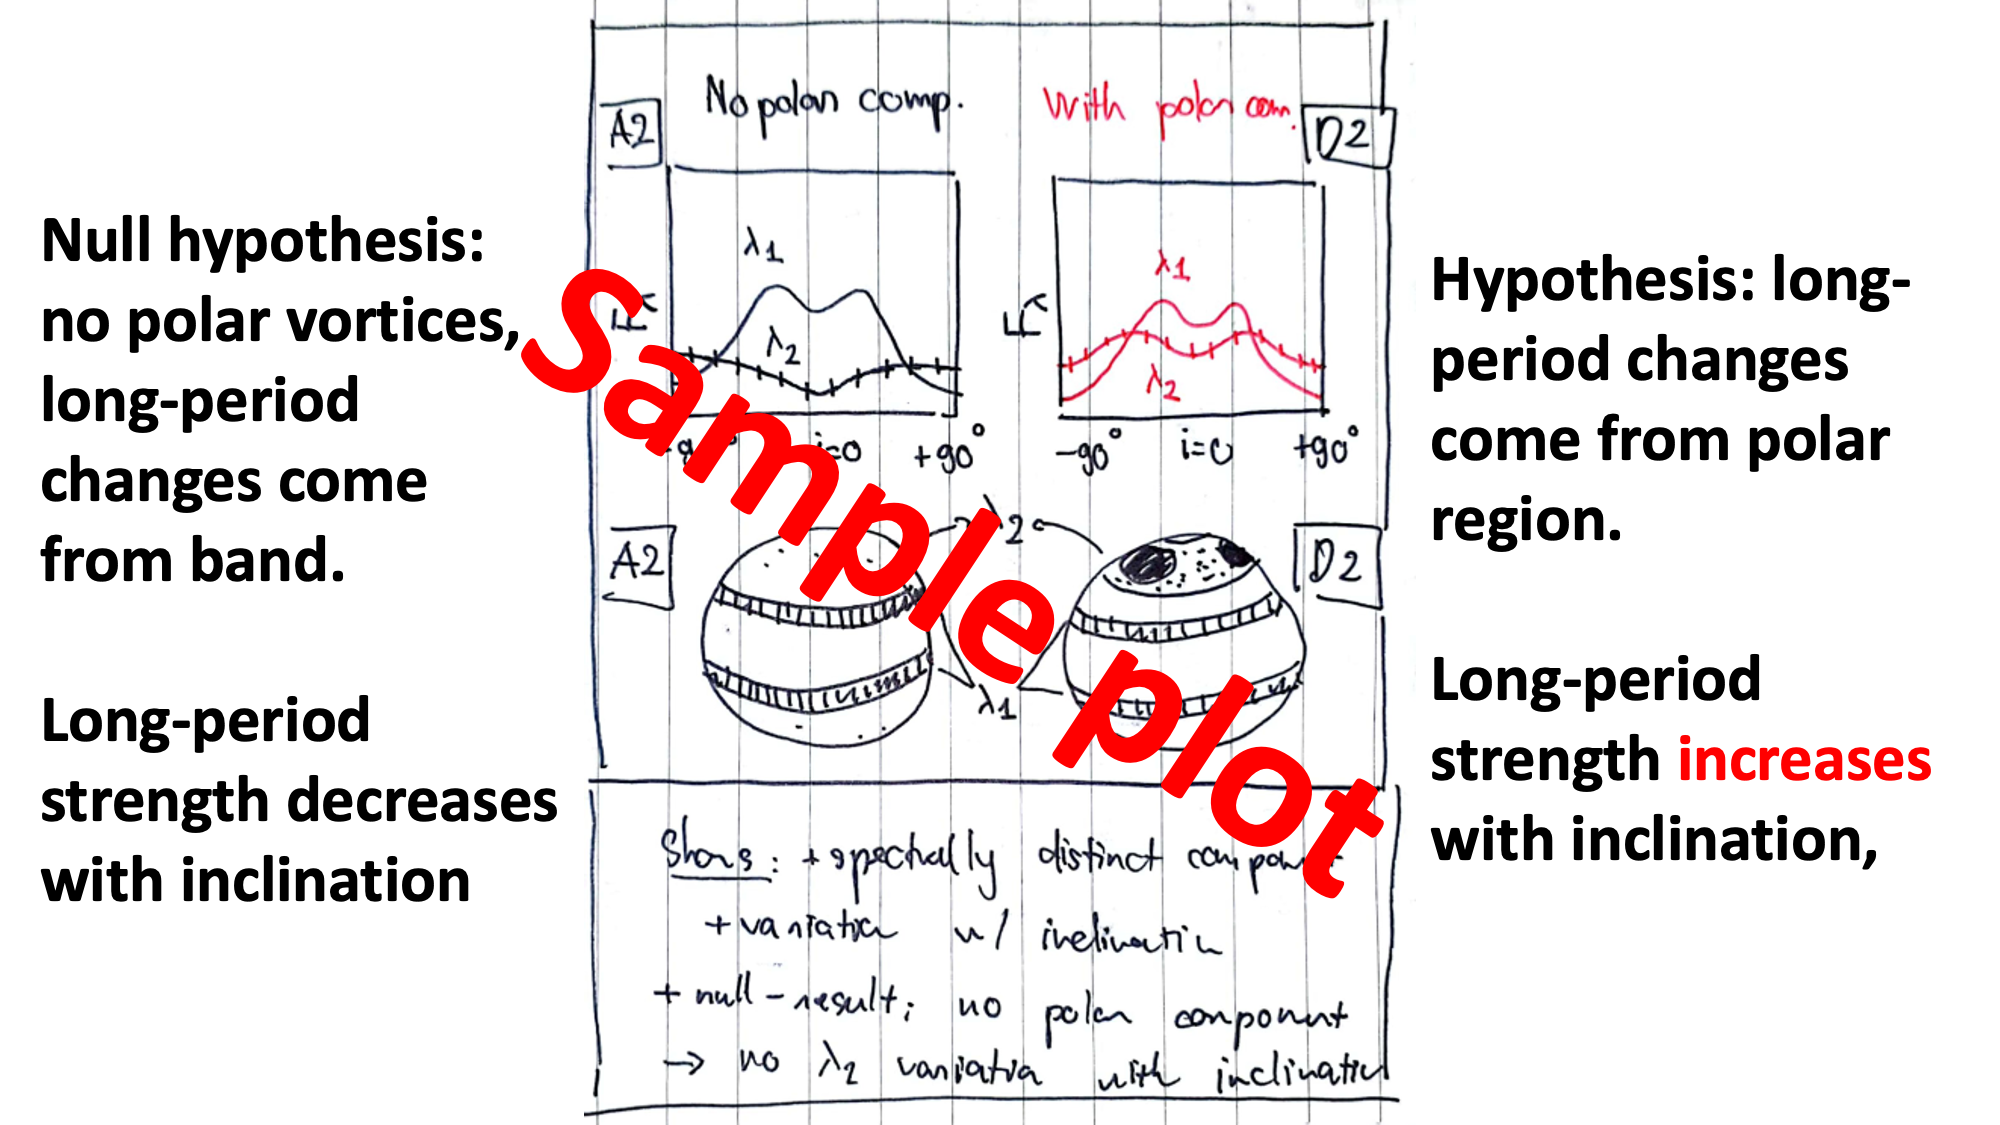 Null hypothesis:
no polar vortices,
long-period
changes come
from band.
Long-period
strength decreases
with inclination
No polar comp.
With polar com.
A2
D2
λ1
λ2
+90°
i=0
λ1
λ2
-90°
i=0
+90°
A2
λ2
D2
λ1
Sample plot
Shows: + spectrally distinct
+ variation w/ inclination
+ null-result: no polar component
→ no λ2 variation with inclination
Hypothesis: long-
period changes
come from polar
region.
Long-period
strength increases
with inclination,